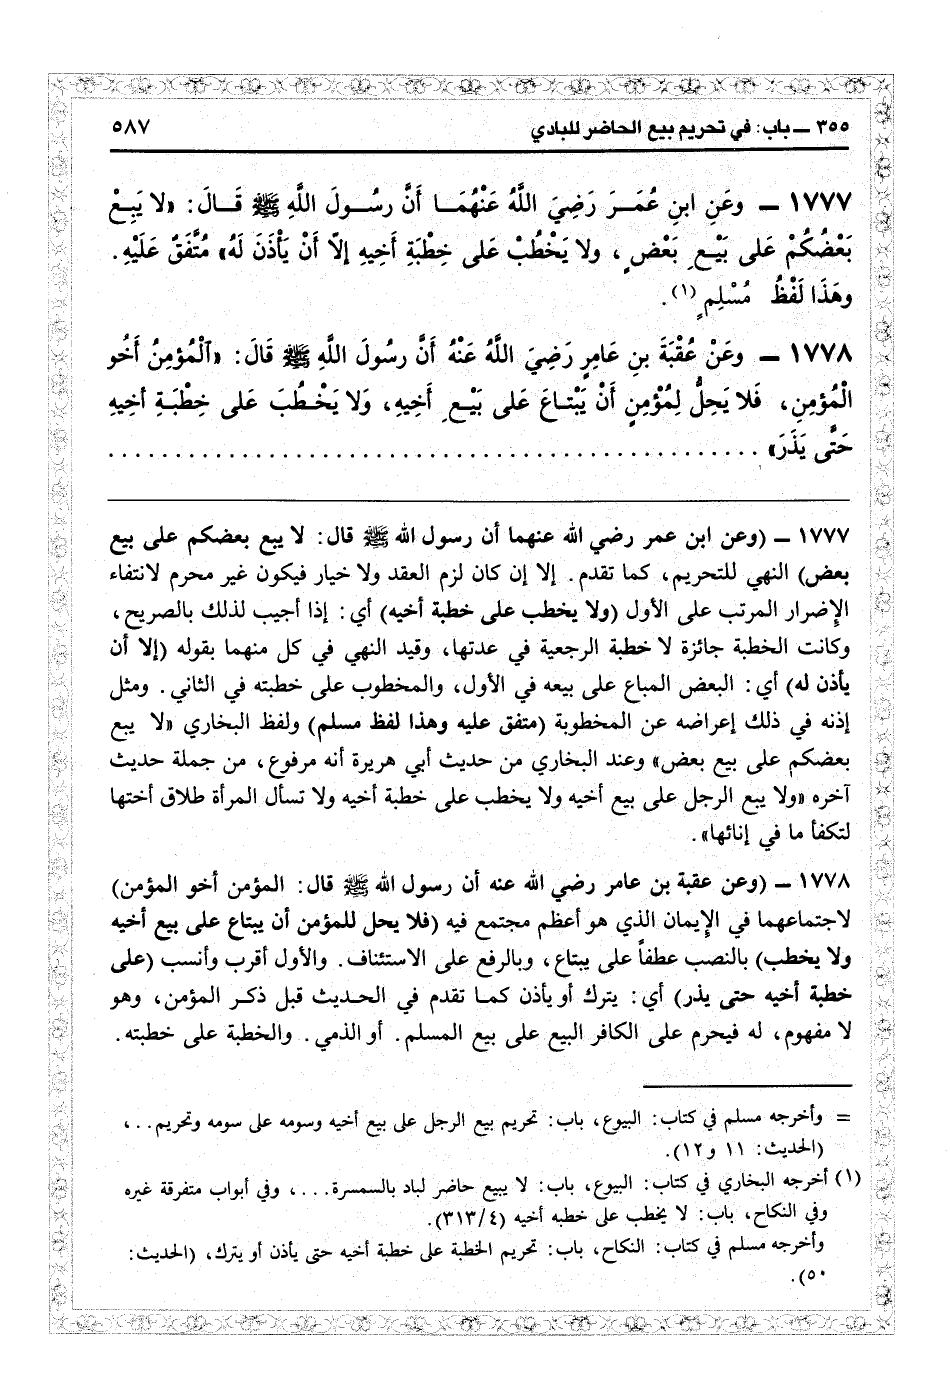 ٣٥٥ ـ باب: في تحريم بيع الحاضر للبادي ٥٨٧
١٧٧٧ ـ وعَنِ ابنِ عُمَـرَ رَضِيَ اللَّهُ عَنْهُمَـا أَنَّ رسُـولَ اللَّهِ ﷺ قَـالَ: «لا يَبِعْ
بَعْضُكُمْ عَلى بَيْعِ بَعْضٍ، ولا يَخْطُبْ عَلى خِطْبَةِ أَخِيهِ إلَّا أَنْ يَأْذَنَ لَهُ» مُتَّفَقٌ عَلَيْهِ.
وهَذَا لَفْظُ مُسْلِمٍ(١).
١٧٧٨ ـ وعَنْ عُقْبَةَ بنِ عامِرٍ رَضِيَ اللَّهُ عَنْهُ أَنَّ رسُولَ اللَّهِ ﷺ قَالَ: «اَلْمُؤمِنُ أَخُو
الْمُؤمِنِ، فَلا يَحِلُّ لِمُؤمِنٍ أَنْ يَبْتـاعَ عَلى بَيْـعِ أَخِيهِ، وَلا يَخْـطُبَ عَلى خِطْبَـةِ أخِيهِ
حَتَّى يَذَرَ» ..................................................
١٧٧٧ ـ (وعن ابن عمر رضي الله عنهما أن رسول الله ﷺ قال: لا يبع بعضكم على بيع
بعض) النهي للتحريم، كما تقدم. إلا إن كان لزم العقد ولا خيار فيكون غير محرم لانتفاء
الإضرار المرتب على الأول (ولا يخطب على خطبة أخيه) أي: إذا أجيب لذلك بالصريح،
وكانت الخطبة جائزة لا خطبة الرجعية في عدتها، وقيد النهي في كل منهما بقوله (إلا أن
يأذن له) أي: البعض المباع على بيعه في الأول، والمخطوب على خطبته في الثاني. ومثل
إذنه في ذلك إعراضه عن المخطوبة (متفق عليه وهذا لفظ مسلم) ولفظ البخاري «لا يبع
بعضكم على بيع بعض» وعند البخاري من حديث أبي هريرة أنه مرفوع، من جملة حديث
آخره «ولا يبع الرجل على بيع أخيه ولا يخطب على خطبة أخيه ولا تسأل المرأة طلاق أختها
لتكفأ ما في إنائها».
١٧٧٨ ـ (وعن عقبة بن عامر رضي الله عنه أن رسول الله ﷺ قال: المؤمن أخو المؤمن)
لاجتماعهما في الإيمان الذي هو أعظم مجتمع فيه (فلا يحل للمؤمن أن يبتاع على بيع أخيه
ولا يخطب) بالنصب عطفاً على يبتاع، وبالرفع على الاستئناف. والأول أقرب وأنسب (على
خطبة أخيه حتى يذر) أي: يترك أو يأذن كمـا تقدم في الحـديث قبل ذكـر المؤمن، وهو
لا مفهوم، له فيحرم على الكافر البيع على بيع المسلم. أو الذمي. والخطبة على خطبته.
= وأخرجه مسلم في كتاب: البيوع، باب: تحريم بيع الرجل على بيع أخيه وسومه على سومه وتحريم...،
(الحديث: ١١ و١٢).
(١) أخرجه البخاري في كتاب: البيوع، باب: لا يبيع حاضر لباد بالسمسرة...، وفي أبواب متفرقة غيره
وفي النكاح، باب: لا يخطب على خطبه أخيه (٣١٣/٤).
وأخرجه مسلم في كتاب: النكاح، باب: تحريم الخطبة على خطبة أخيه حتى يأذن أو يترك، (الحديث:
٥٠).